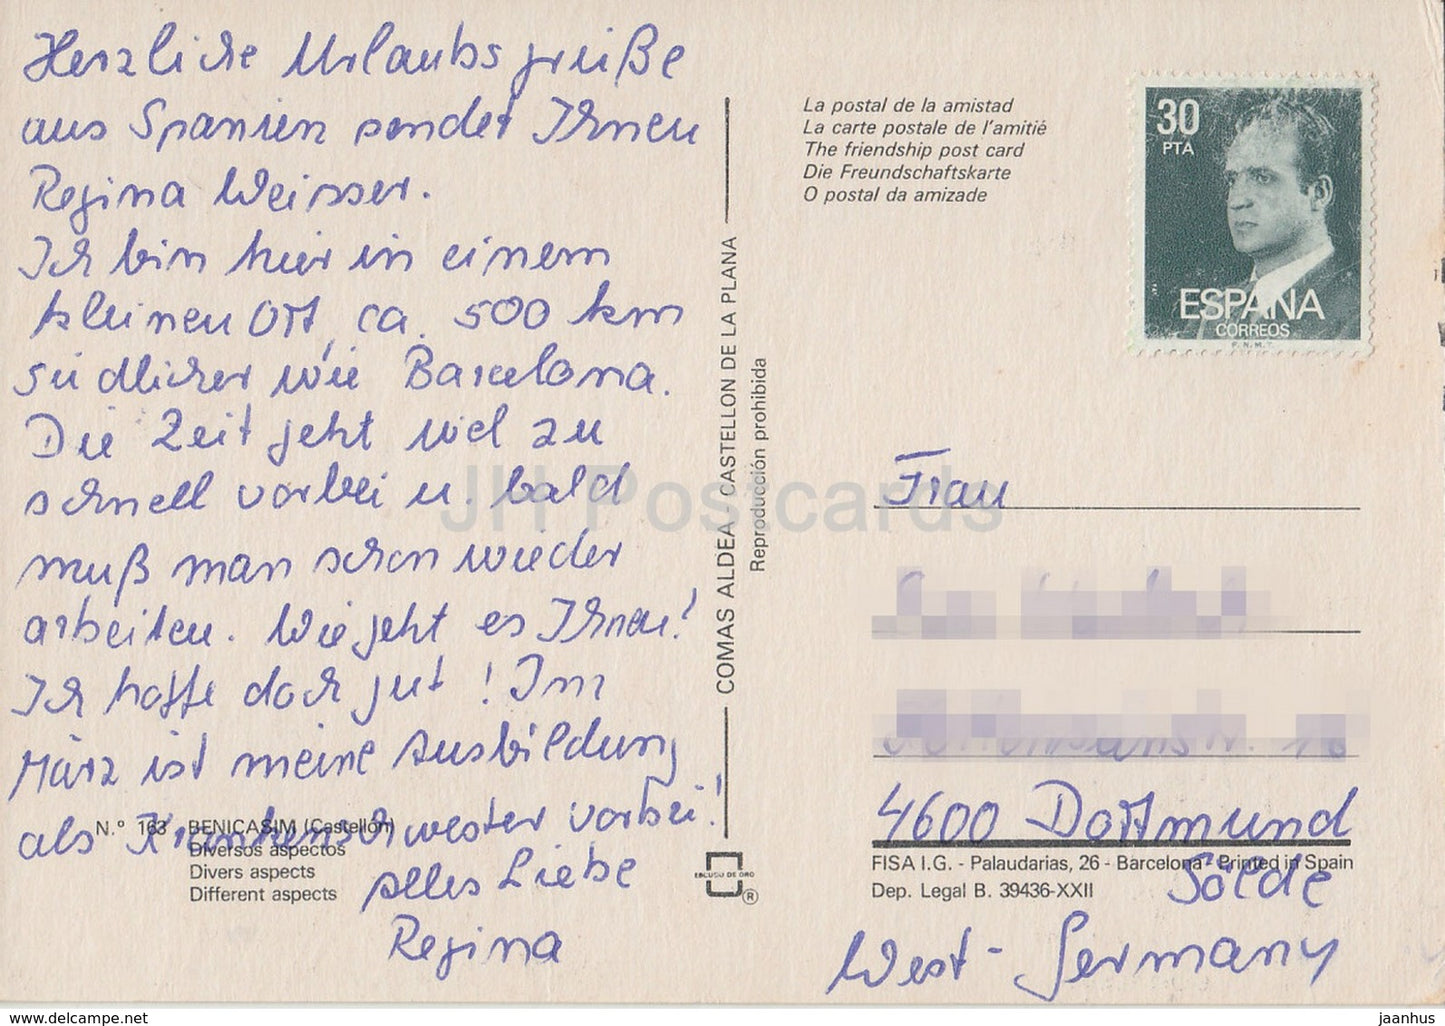 Herzliche Urlaubsgrüße
aus Spanien sendet Ihnen
Regina Weisser.
Ich bin hier in einem
kleinen Ort, ca. 500 km
südlicher wie Barcelona.
Die Zeit geht viel zu
schnell vorbei u. bald
muß man schon wieder
arbeiten. Wie geht es Ihnen?
Ich hoffe doch gut! Im
März ist meine Ausbildung
als Krankenschwester vorbei!
Alles Liebe
Regina
N.º 163 BENICASIM (Castellón)
Diversos aspectos
Divers aspects
Different aspects
COMAS ALDEA, CASTELLON DE LA PLANA
Reproducción prohibida
ESCUDO DE ORO
®
La postal de la amistad
La carte postale de l'amitié
The friendship post card
Die Freundschaftskarte
O postal da amizade
30
PTA
ESPAÑA
CORREOS
F.N.M.T.
Frau
4600 Dortmund
Sölde
West-Germany
FISA I.G. - Palaudarias, 26 - Barcelona - Printed in Spain
Dep. Legal B. 39436-XXII
JH Postcards
www.delcampe.net
jaanhus